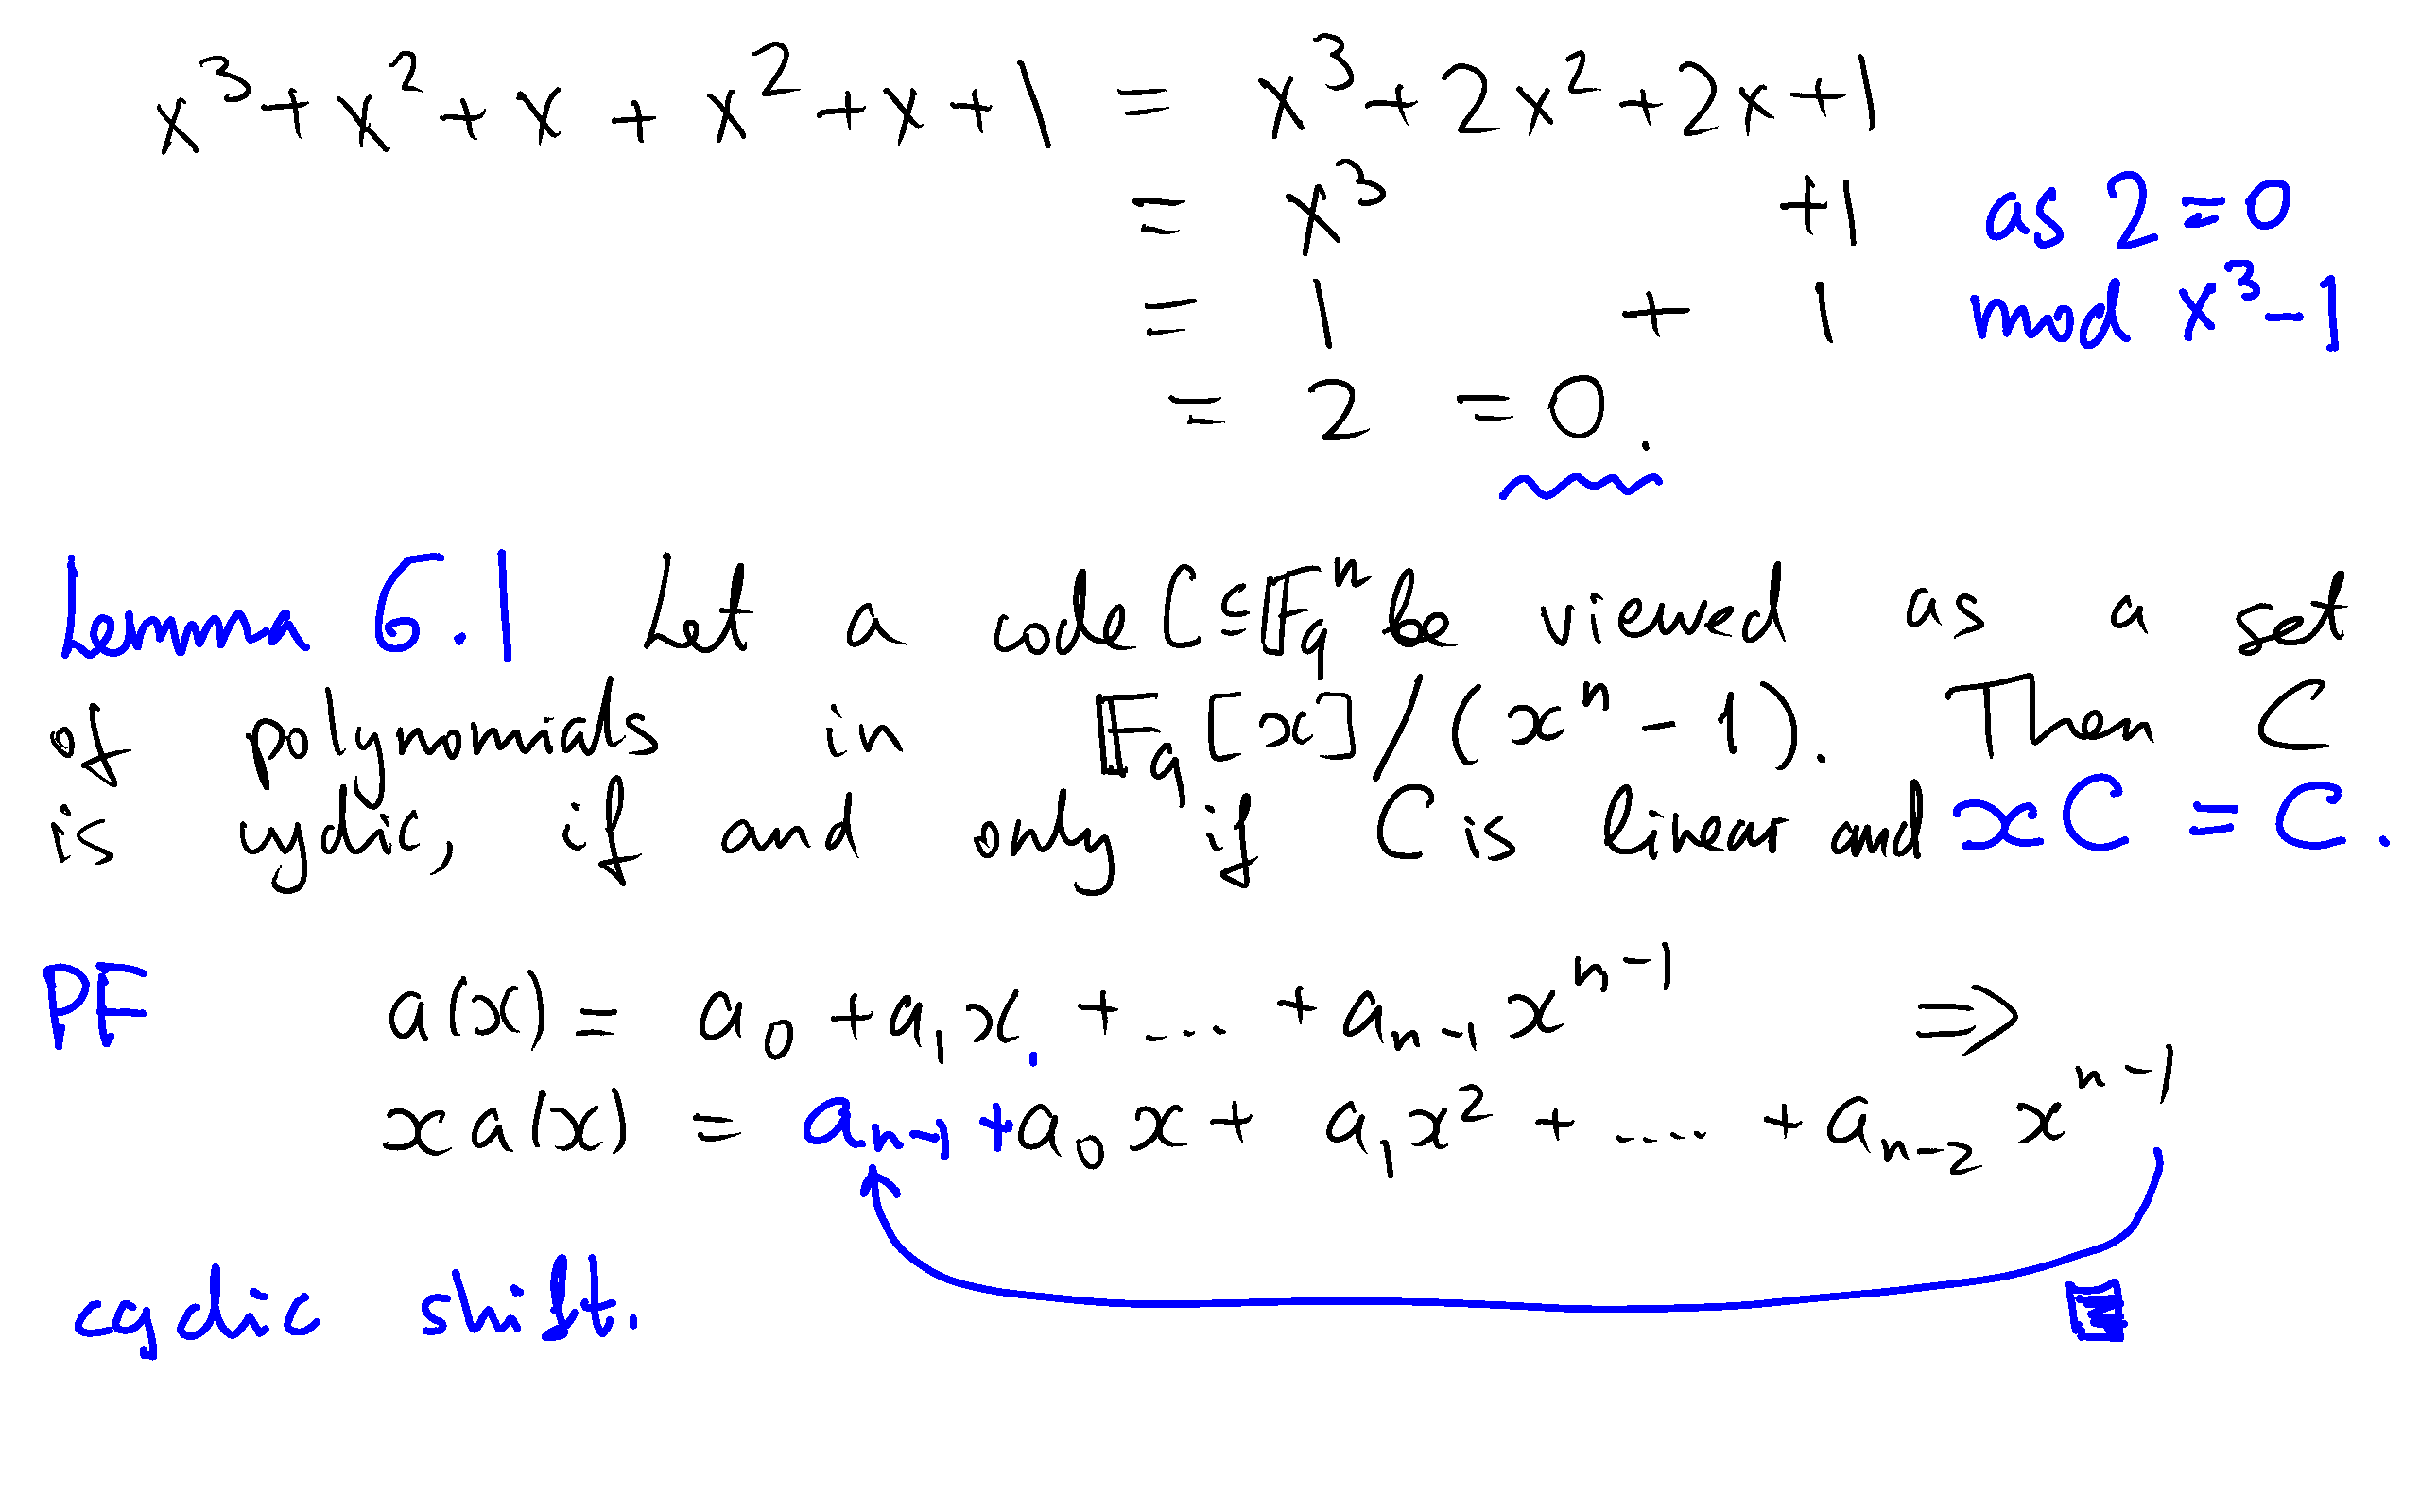 x³ + x² + x + x² + x + 1 = x³ + 2x² + 2x + 1
= x³ + 1 as 2 = 0
= 1 + 1 mod x³ - 1
= 2 = 0.
Lemma 6.1 Let a code C ⊆ 𝔽_q^n be viewed as a set
of polynomials in 𝔽_q[x]/(x^n - 1). Then C
is cyclic, if and only if C is linear and xC = C.
PF a(x) = a_0 + a_1 x + ... + a_{n-1} x^{n-1} ⇒
x a(x) = a_{n-1} + a_0 x + a_1 x² + .... + a_{n-2} x^{n-1}
cyclic shift.